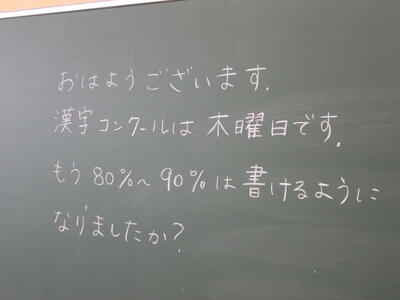 おはようございます.
漢字コンクールは木曜日です.
もう80%~90%は書けるように
なりましたか?